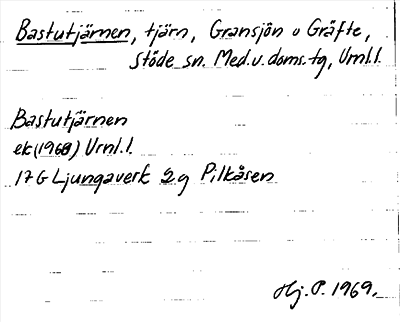 Bastutjärnen, tjärn, Gransjön o Gräfte,
Stöde sn. Med.v.doms.tg, Vrnl.l.
Bastutjärnen
ek(1968) Vrnl.l.
17G Ljungaverk 2g Pilkåsen
Hj.P. 1969.